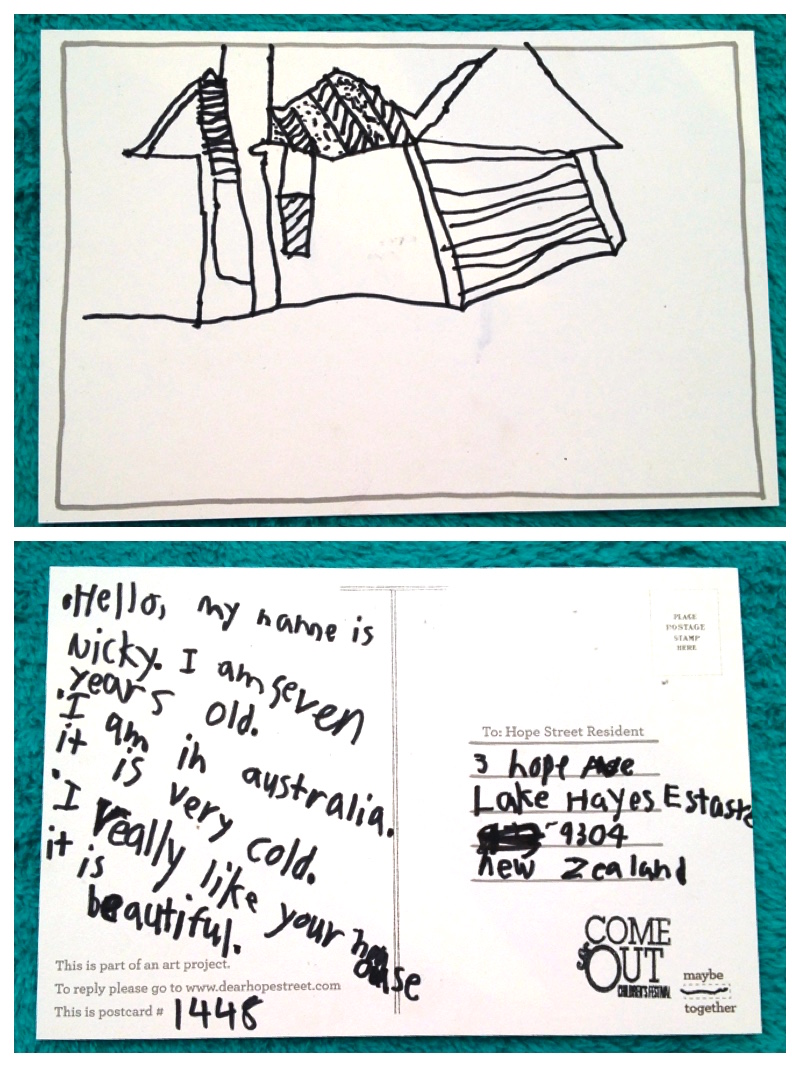 Hello, my name is
Nicky. I am seven
years old.
I am in australia.
it is very cold.
I really like your house
it is
beautiful.
This is part of an art project.
To reply please go to www.dearhopestreet.com
This is postcard # 1448
PLACE
POSTAGE
STAMP
HERE
To: Hope Street Resident
3 hope Ave
Lake Hayes Estaste
4304
new Zealand
COME
OUT
CHILDREN'S FESTIVAL
maybe
together